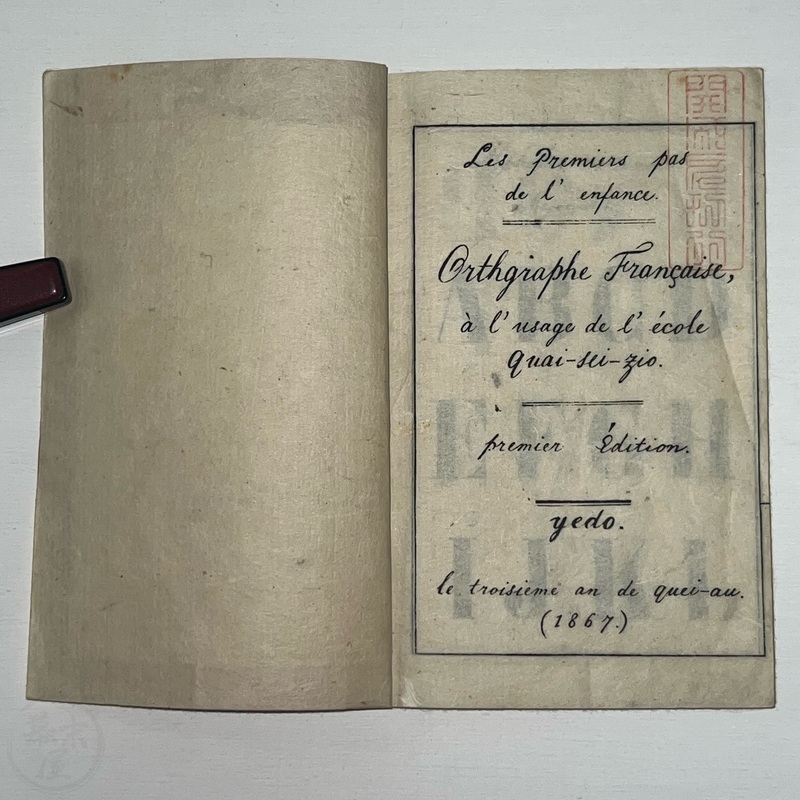 Les Premiers pas
de l' enfance.
Orthgraphe Française,
à l'usage de l'école
Quai-sei-zio.
premier Édition.
yedo.
le troisieme an de quei-au.
(1867.)